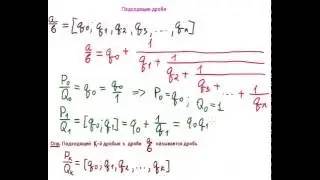 Подходящие дроби
a/b = [q₀, q₁, q₂, q₃, ..., qₙ]
a/b = q₀ + 1/(q₁ + 1/(q₂ + 1/(q₃ + ... + 1/qₙ)))
P₀/Q₀ = q₀ = q₀/1 ⇒ P₀ = q₀; Q₀ = 1
P₁/Q₁ = [q₀; q₁] = q₀ + 1/q₁ = q₀q₁
Опр. Подходящей k-й дробью к дроби a/b называется дробь
Pₖ/Qₖ = [q₀; q₁, q₂, ..., qₖ]